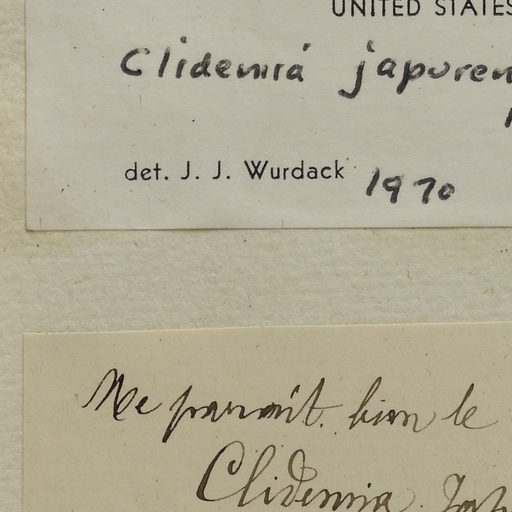 UNITED STATES
Clidemia japuren
det. J. J. Wurdack 1970
Me parait bien le
Clidemia Jap